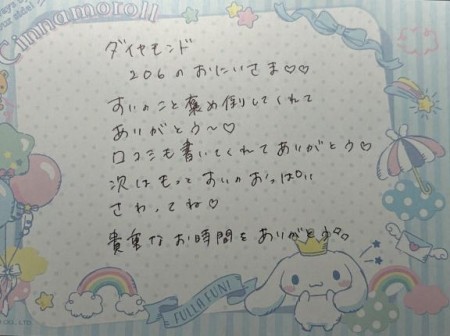 Cinnamoroll
ダイヤモンド
206のおにいさま♡♡
すいのこと褒め倒してくれて
ありがとう〜♡
口コミも書いてくれてありがとう♡
次はもっとすいのおっぱい
さわってね♡
貴重なお時間をありがとう♡
FULL OF FUN!